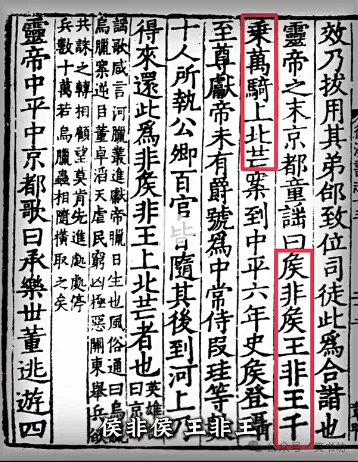 效乃拔用其弟郃致位司徒此爲合諧也
靈帝之末京都童謠曰侯非侯王非王千
乘萬騎上北芒案到中平六年史侯登躡
至尊獻帝未有爵號爲中常侍段珪等
十人所執公卿百官皆隨其後到河上
得來還此爲非侯非王上北芒者也英雄
謠歌咸言河臘叢進獻帝臘日生也風俗通曰烏臘
烏臘案逆臣董卓滔天虐民窮凶極惡關東舉兵欲
共誅之轉相顧望莫肯先進處處停
兵數十萬若烏臘蟲相隨橫取之矣
靈帝中平中京都歌曰承樂世董逃遊四
侯非侯 王非王